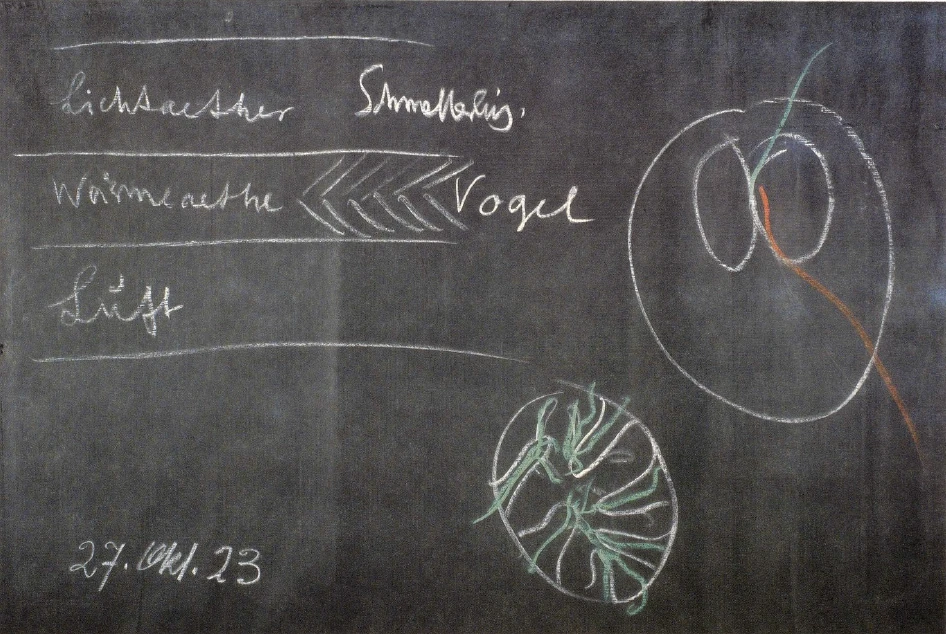 Lichtaether Schmetterling.
Wärmeaether Vogel
Luft
27. Okt. 23